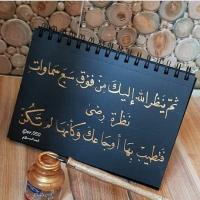 ثمّ ينظر الله إليك من فوق سبع سماوات
نظرة رضى
فتطيب بها أوجاعك وكأنها لم تكن